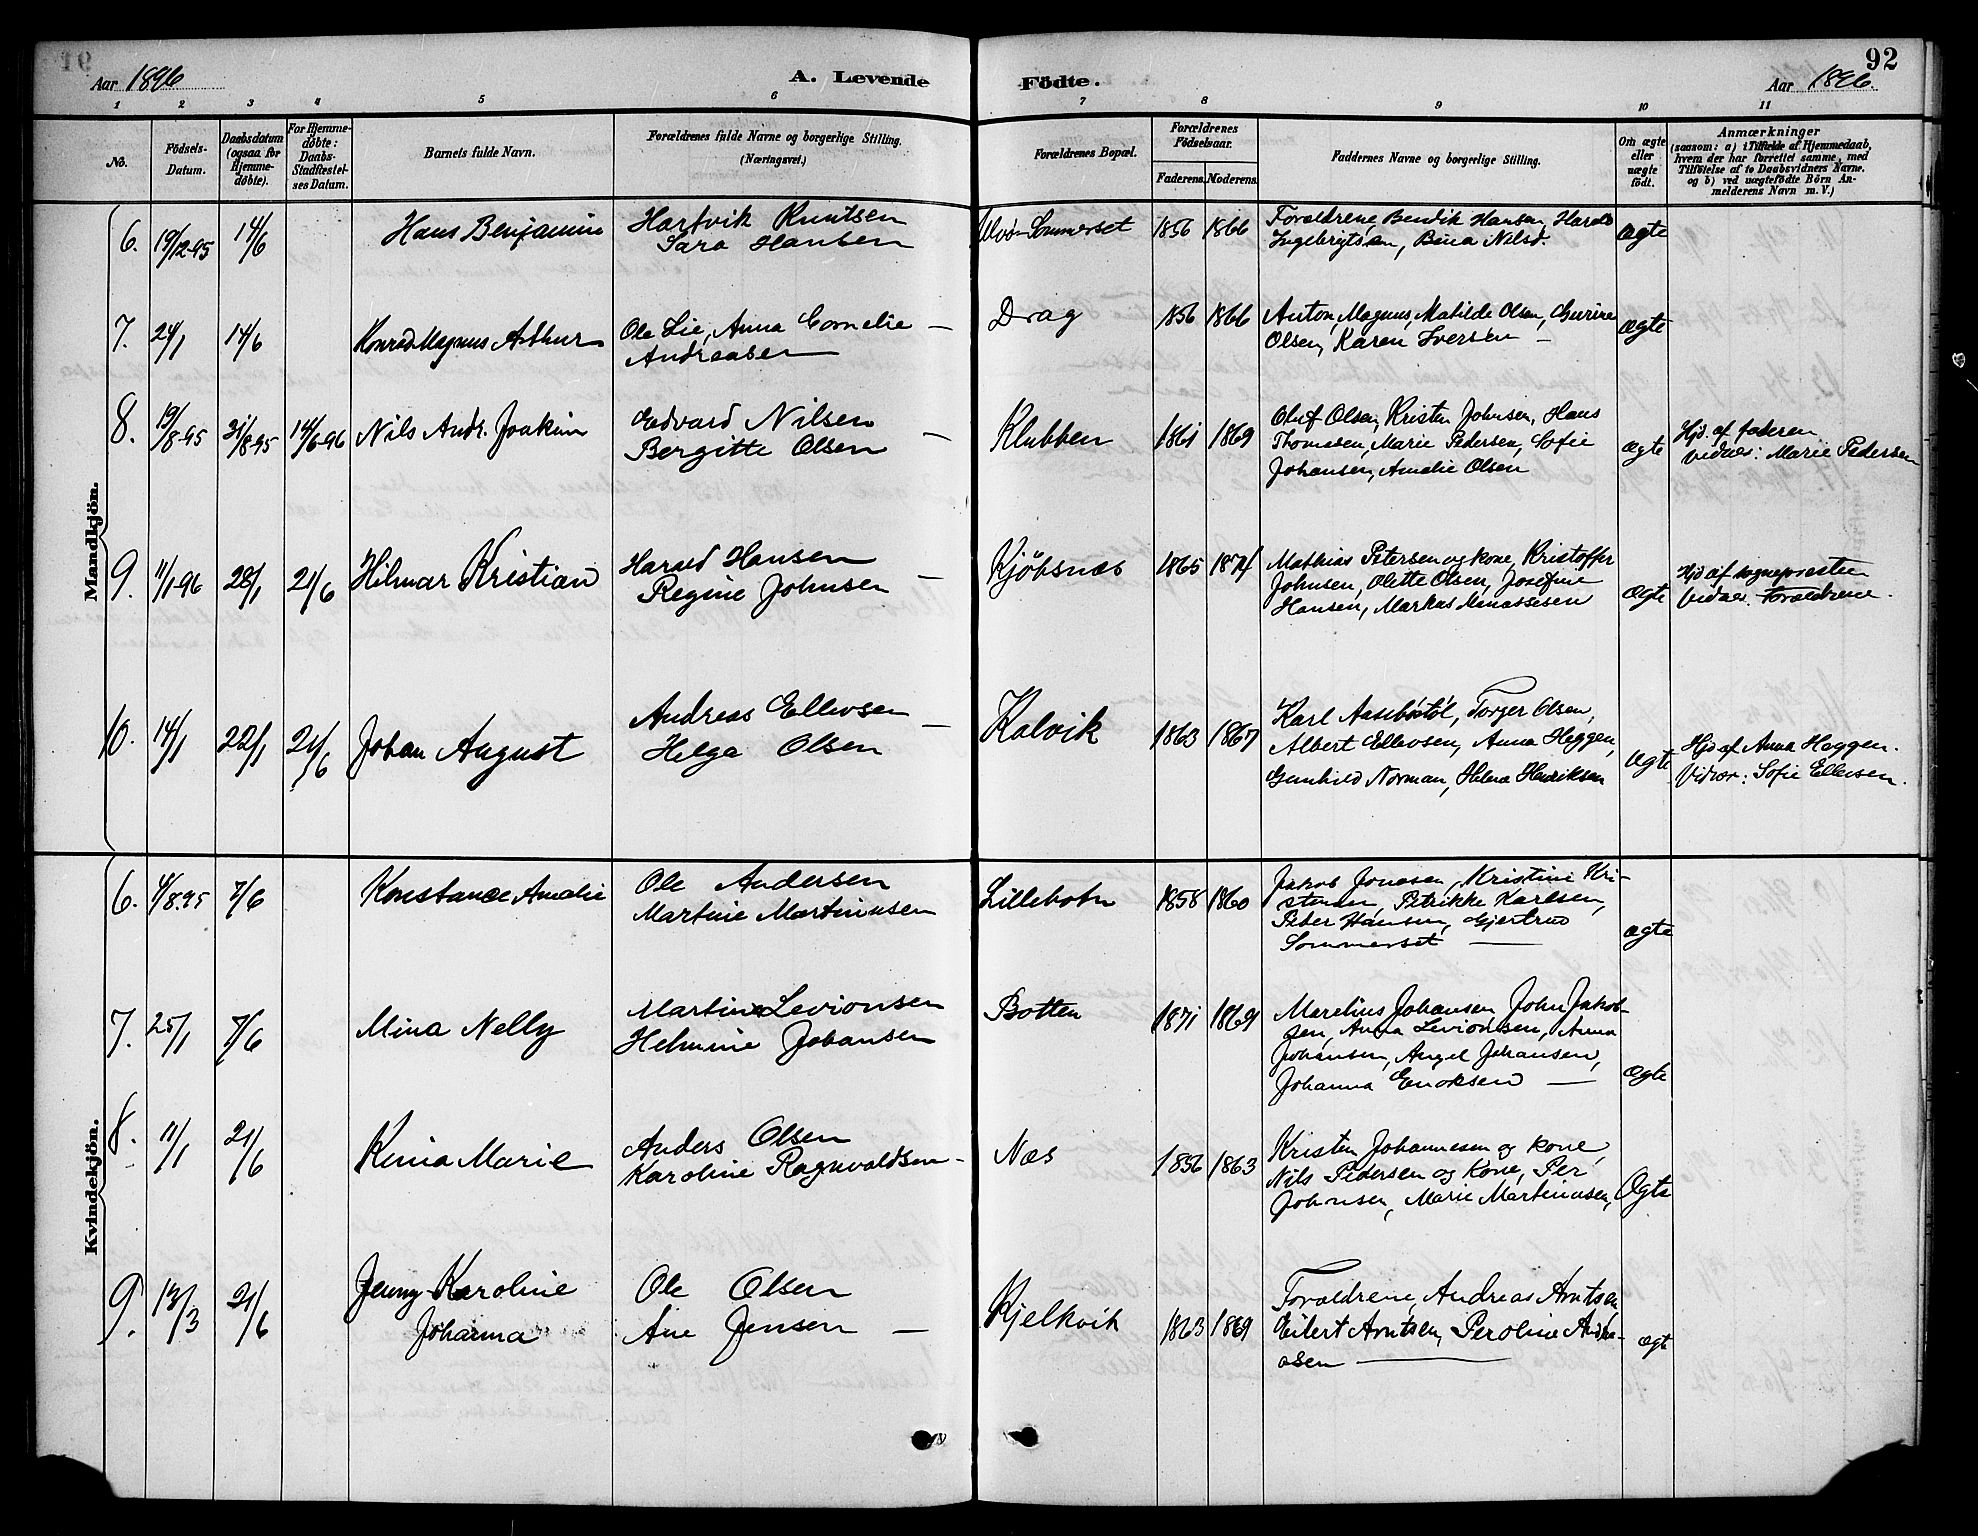 92
Aar 1896
A. Levende
Födte.
Aar 1896.
1 2 3 4 5 6 7 8 9 10 11
No.
Födsels-Datum.
Daabsdatum (ogsaa for Hjemmedöbte).
For Hjemmedöbte: Daabs-Stadfestelses Datum.
Barnets fulde Navn.
Forældrenes fulde Navne og borgerlige Stilling.
(Næringsvei.)
Forældrenes Bopæl.
Forældrenes Födselsaar.
Faderens. Moderens.
Faddernes Navne og borgerlige Stilling.
Om ægte eller uægte födt.
Anmærkninger
(saasom: a) i Tilfælde af Hjemmedaab, hvem der har forrettet samme, med Tilföielse af to Daabsvidners Navne. og b) ved uægtefödte Börn Anmelderens Navn m. V.)
Mandkjön.
6. 19/12 95 14/6 Hans Benjamin
Hartvik Knutsen
Sara Hansen
Ulvö-Sommerset 1856 1866
Forældrene, Bendik Hansen, Harald
Ingebrigtsen, Bina Nilsd.
Ægte
7. 24/1 14/6 Konrad Magnus Arthur
Ole Lie, Anna Cornelie —
Andreasen
Drag 1856 1866
Anton, Magnus, Matilde Olsen, Gurine
Olsen, Karen Iversen —
ægte
8. 19/8-95 31/8 95 14/6-96 Nils Andr. Joakim
Edvard Nilsen
Bergitte Olsen —
Klubben 1861 1869
Oluf Olsen, Kristen Johnsen, Hans
Thomasen, Marie Pedersen, Sofie
Johansen, Amalie Olsen
ægte
Hjd. af faderen
Vidner: Marie Pedersen
9. 11/1 96 28/1 21/6 Hilmar Kristian
Harald Hansen
Regine Johnsen —
Kjöbsnæs 1865 1874
Mathias Petersen og kone, Kristoffer
Johnsen, Olette Olsen, Josefine
Hansen, Markus Manassesen
ægte
Hjd af sognepresten
Vidner. Forældrene.
10. 14/1 22/1 21/6 Johan August
Andreas Ellevsen —
Helga Olsen
Kalvik 1863 1867
Karl Aaseböstöl, Torger Olsen,
Albert Ellevsen, Anna Heggen,
Gunhild Norman, Helena Henriksen
ægte
Hjd af Anna Heggen.
Vidner: Sofie Ellevsen.
Kvindekjön.
6. 4/8.95 7/6 Konstance Amalie
Ole Andersen
Martine Martinusen
Lillebotn 1858 1860
Jakob Jonasen, Kristine Kri-
stensen, Petrikke Karlsen,
Peder Hansen, Gjertrud
Sommerset —
ægte
7. 25/1 7/6 Mina Nelly
Martin Levionsen
Helmine Johansen
Botten 1871 1869
Marelius Johansen, John Jakob-
sen, Anna Levionsen, Anna
Johansen, Angel Johansen,
Johanna Enoksen —
Ægte
8. 11/1 21/6 Kinia Marie
Anders Olsen
Karoline Ragnvaldsen —
Næs 1856 1863
Kristen Johannesen og kone,
Nils Pedersen og Kone, Per
Johnsen, Marie Martinusen,
Ægte
9. 13/3 21/6 Jenny Karoline
Johanna
Ole Olsen
Ane Jensen —
Kjelkvik 1863 1869
Forældrene, Andreas Arntsen
Eilert Arntsen, Peroline Andre-
asen —
ægte